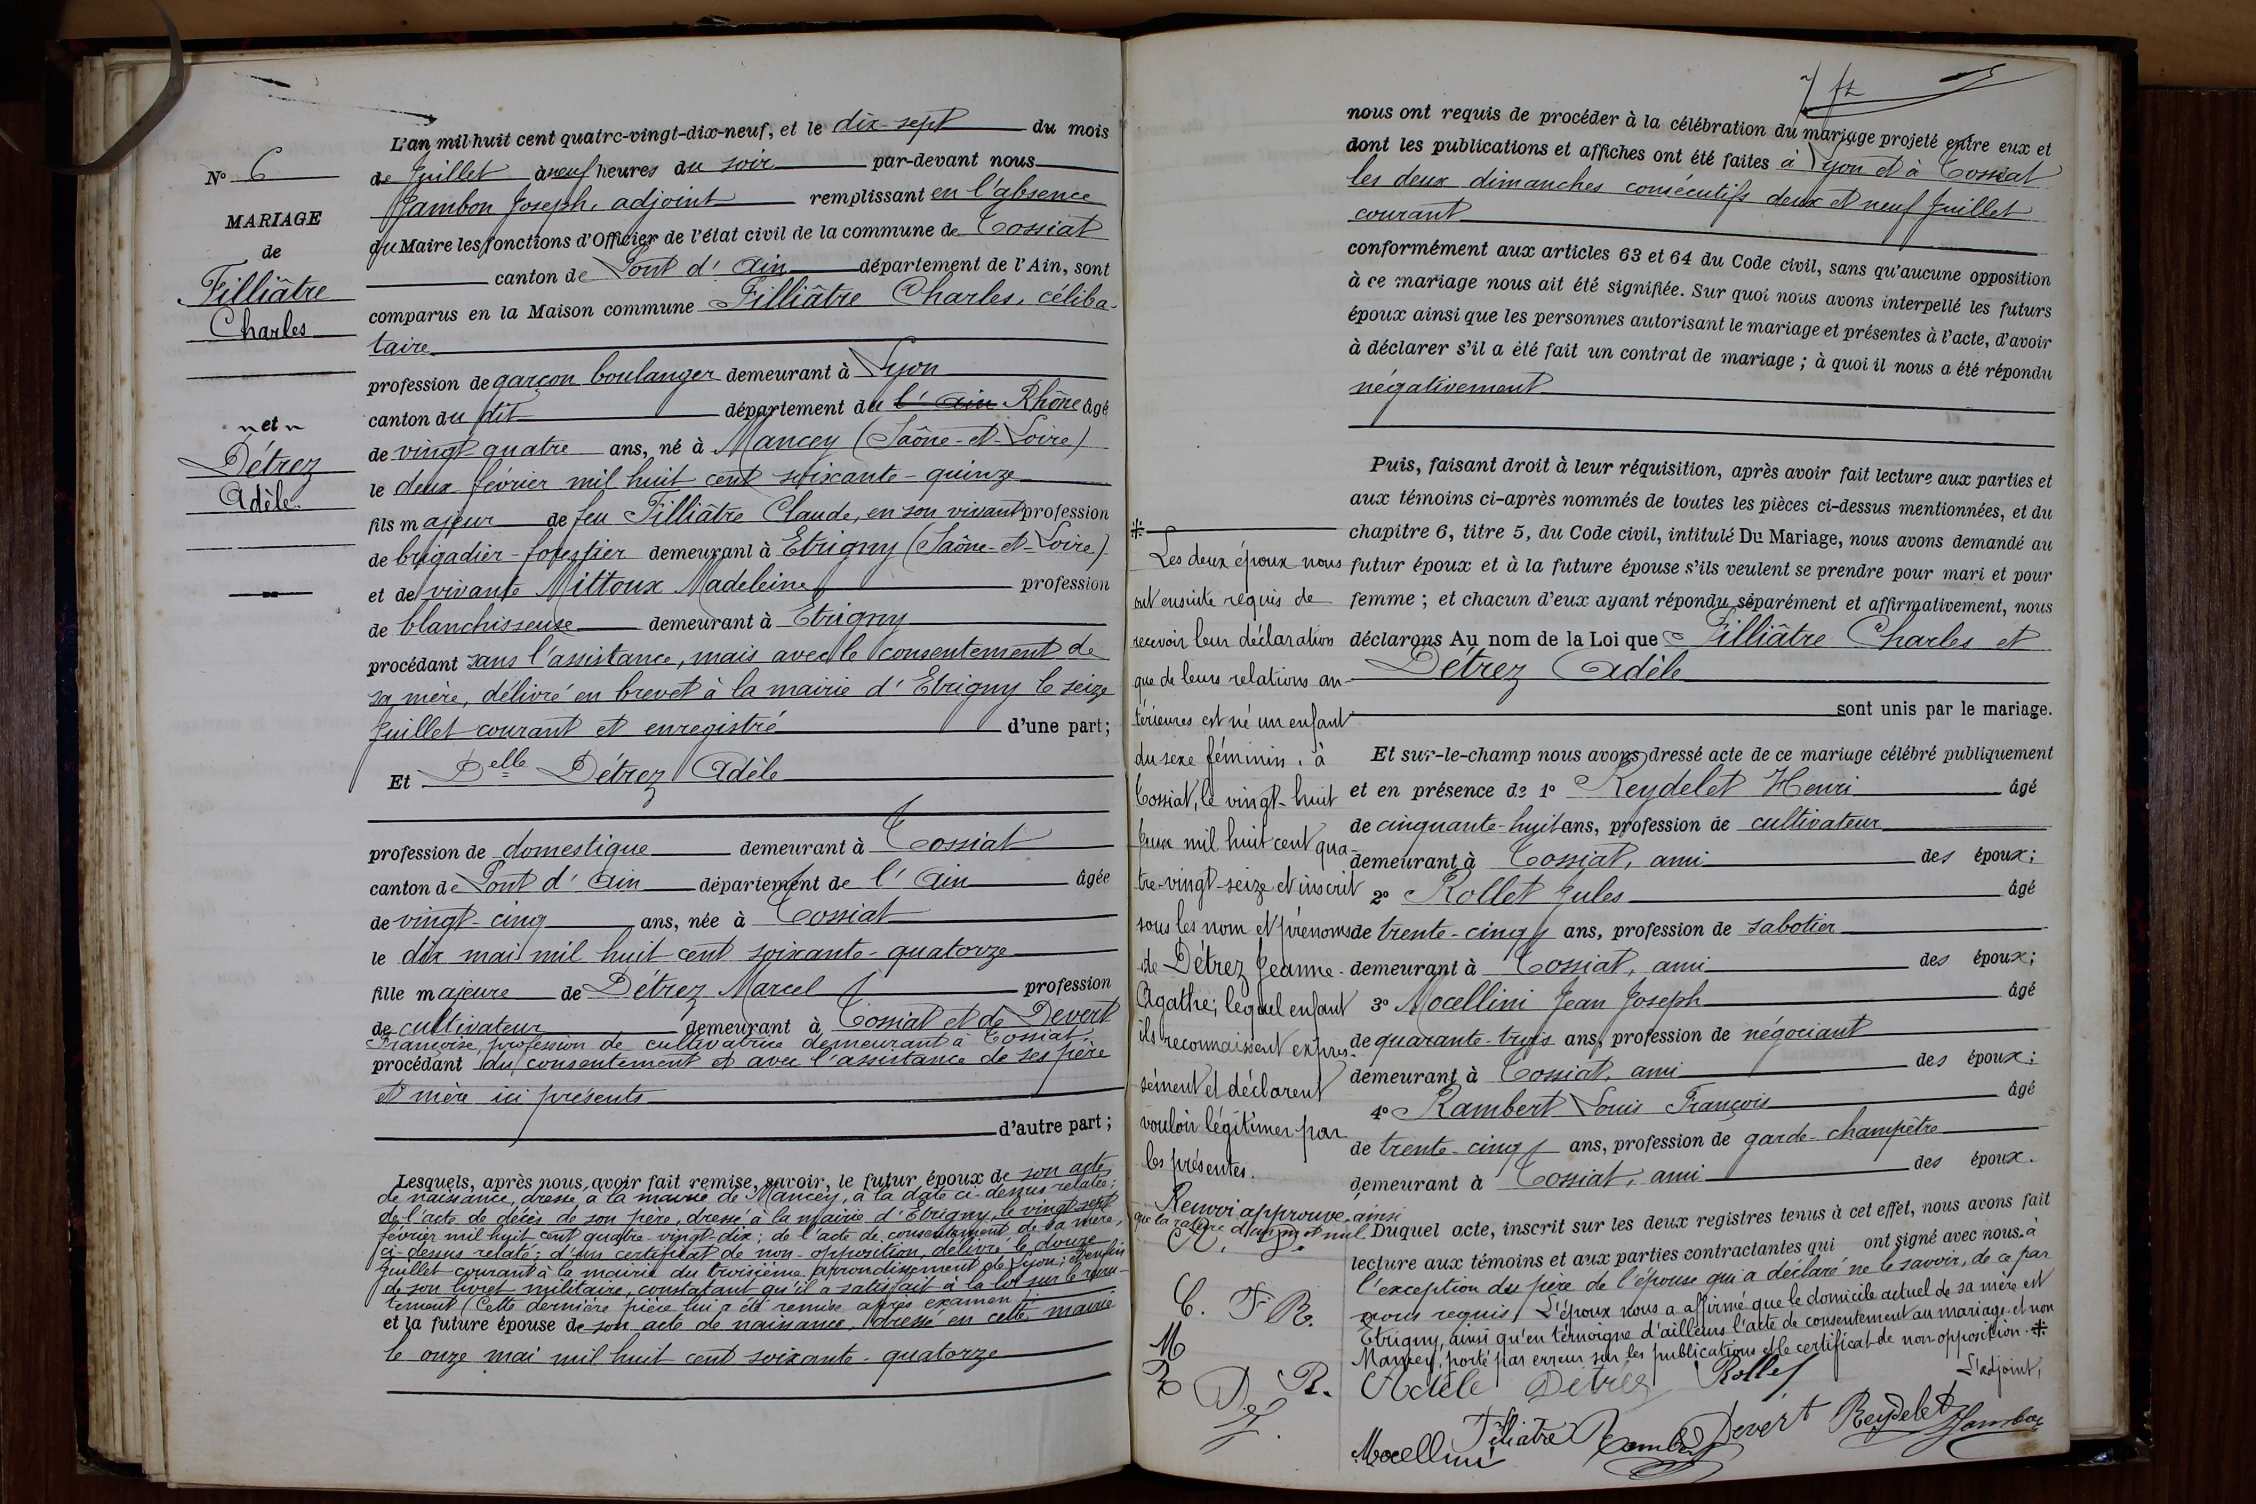 N° 6
MARIAGE
de
Filliâtre
Charles
et
Détrez
Adèle.
L'an mil huit cent quatre-vingt-dix-neuf, et le dix-sept du mois
de Juillet à neuf heures du soir par-devant nous
Jambon Joseph, adjoint remplissant en l'absence
du Maire les fonctions d'Officier de l'état civil de la commune de Tossiat
canton de Pont d'Ain département de l'Ain, sont
comparus en la Maison commune Filliâtre Charles, céliba-
taire
profession de garçon boulanger demeurant à Lyon
canton du dit département du l'Ain Rhône âgé
de vingt quatre ans, né à Mancey (Saône-et-Loire)
le deux février mil huit cent soixante-quinze
fils majeur de feu Filliâtre Claude, en son vivant profession
de brigadier-forestier demeurant à Etrigny (Saône-et-Loire)
et de vivante Mittoux Madeleine profession
de blanchisseuse demeurant à Etrigny
procédant sans l'assistance, mais avec le consentement de
sa mère, délivré en brevet à la mairie d'Etrigny le seize
Juillet courant et enregistré d'une part;
Et Delle Détrez Adèle
profession de domestique demeurant à Tossiat
canton de Pont d'Ain département de l'Ain âgée
de vingt-cinq ans, née à Tossiat
le dix mai mil huit cent soixante-quatorze
fille majeure de Détrez Marcel profession
de cultivateur demeurant à Tossiat et de Devert
Françoise, profession de cultivatrice demeurant à Tossiat,
procédant du consentement et avec l'assistance de ses père
et mère ici présents
d'autre part;
Lesquels, après nous avoir fait remise, savoir, le futur époux de son acte
de naissance, dressé à la mairie de Mancey, à la date ci-dessus relatée;
de l'acte de décès de son père, dressé à la mairie d'Etrigny, le vingt-sept
février mil huit cent quatre-vingt-dix; de l'acte de consentement de sa mère,
ci-dessus relaté; d'un certificat de non-opposition, délivré le douze
Juillet courant à la mairie du troisième arrondissement de Lyon; enfin
de son livret militaire, constatant qu'il a satisfait à la loi sur le recru-
tement (Cette dernière pièce lui a été remise après examen);
et la future épouse de son acte de naissance, dressé en cette mairie
le onze mai mil huit cent soixante-quatorze
nous ont requis de procéder à la célébration du mariage projeté entre eux et
dont les publications et affiches ont été faites à Lyon et à Tossiat
les deux dimanches consécutifs deux et neuf Juillet
courant
conformément aux articles 63 et 64 du Code civil, sans qu'aucune opposition
à ce mariage nous ait été signifiée. Sur quoi nous avons interpellé les futurs
époux ainsi que les personnes autorisant le mariage et présentes à l'acte, d'avoir
à déclarer s'il a été fait un contrat de mariage; à quoi il nous a été répondu
négativement
Puis, faisant droit à leur réquisition, après avoir fait lecture aux parties et
aux témoins ci-après nommés de toutes les pièces ci-dessus mentionnées, et du
chapitre 6, titre 5, du Code civil, intitulé Du Mariage, nous avons demandé au
futur époux et à la future épouse s'ils veulent se prendre pour mari et pour
femme; et chacun d'eux ayant répondu séparément et affirmativement, nous
déclarons Au nom de la Loi que Filliâtre Charles et
Détrez Adèle
sont unis par le mariage.
Et sur-le-champ nous avons dressé acte de ce mariage célébré publiquement
et en présence de 1° Reydelet Henri âgé
de cinquante-huit ans, profession de cultivateur
demeurant à Tossiat, ami des époux;
2° Rollet Jules âgé
de trente-cinq ans, profession de sabotier
demeurant à Tossiat, ami des époux;
3° Mocellini Jean Joseph âgé
de quarante-trois ans, profession de négociant
demeurant à Tossiat, ami des époux;
4° Rambert Louis François âgé
de trente-cinq ans, profession de garde-champêtre
demeurant à Tossiat, ami des époux.
Duquel acte, inscrit sur les deux registres tenus à cet effet, nous avons fait
lecture aux témoins et aux parties contractantes qui ont signé avec nous à
l'exception du père de l'épouse qui a déclaré ne le savoir, de ce par
nous requis. L'époux nous a affirmé que le domicile actuel de sa mère est
Etrigny, ainsi qu'en témoigne d'ailleurs l'acte de consentement au mariage et non
Mancey, porté par erreur sur les publications et le certificat de non opposition. *
L'adjoint,
Adèle Détrez Rollet
Filiatre Rambert Devert Reydelet Jambon
Mocellini
*
Les deux époux nous
ont ensuite requis de
recevoir leur déclaration
que de leurs relations an-
térieures est né un enfant
du sexe féminin, à
Tossiat, le vingt-huit
Juin mil huit cent qua-
tre-vingt-seize et inscrit
sous les nom et prénoms
de Détrez Jeanne-
Agathe; lequel enfant
ils reconnaissent expres-
sément et déclarent
vouloir légitimer par
les présentes.
Renvoi approuvé, ainsi
que la rature d'un mot nul.
C. F R.
M
R D. R.
J.